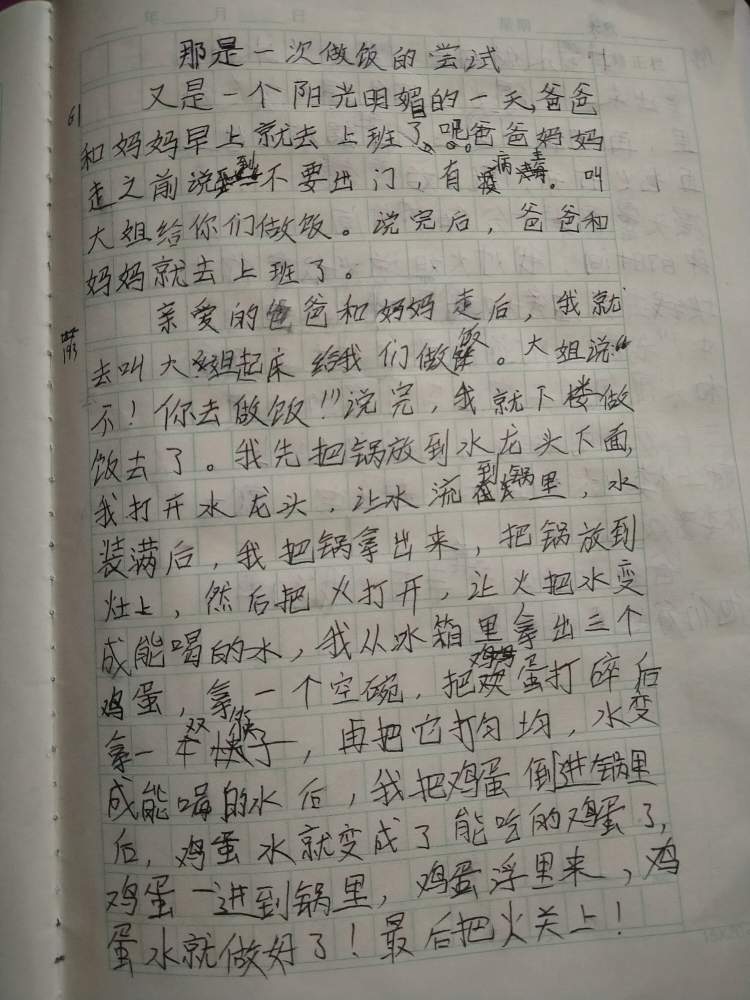 那是一次做饭的尝试
又是一个阳光明媚的一天,爸爸
和妈妈早上就去上班了。爸爸妈妈
走之前说到不要出门,有病毒。叫
大姐给你们做饭。说完后,爸爸和
妈妈就去上班了。
亲爱的爸爸和妈妈走后,我就
去叫大姐起床给我们做饭。大姐说:“
不!你去做饭!”说完,我就下楼做
饭去了。我先把锅放到水龙头下面,
我打开水龙头,让水流到锅里,水
装满后,我把锅拿出来,把锅放到
灶上,然后把火打开,让火把水变
成能喝的水,我从冰箱里拿出三个
鸡蛋,拿一个空碗,把鸡蛋打碎后
拿一双筷子,再把它打匀均,水变
成能喝的水后,我把鸡蛋倒进锅里
后,鸡蛋水就变成了能吃的鸡蛋了,
鸡蛋一进到锅里,鸡蛋浮里来,鸡
蛋水就做好了!最后把火关上!